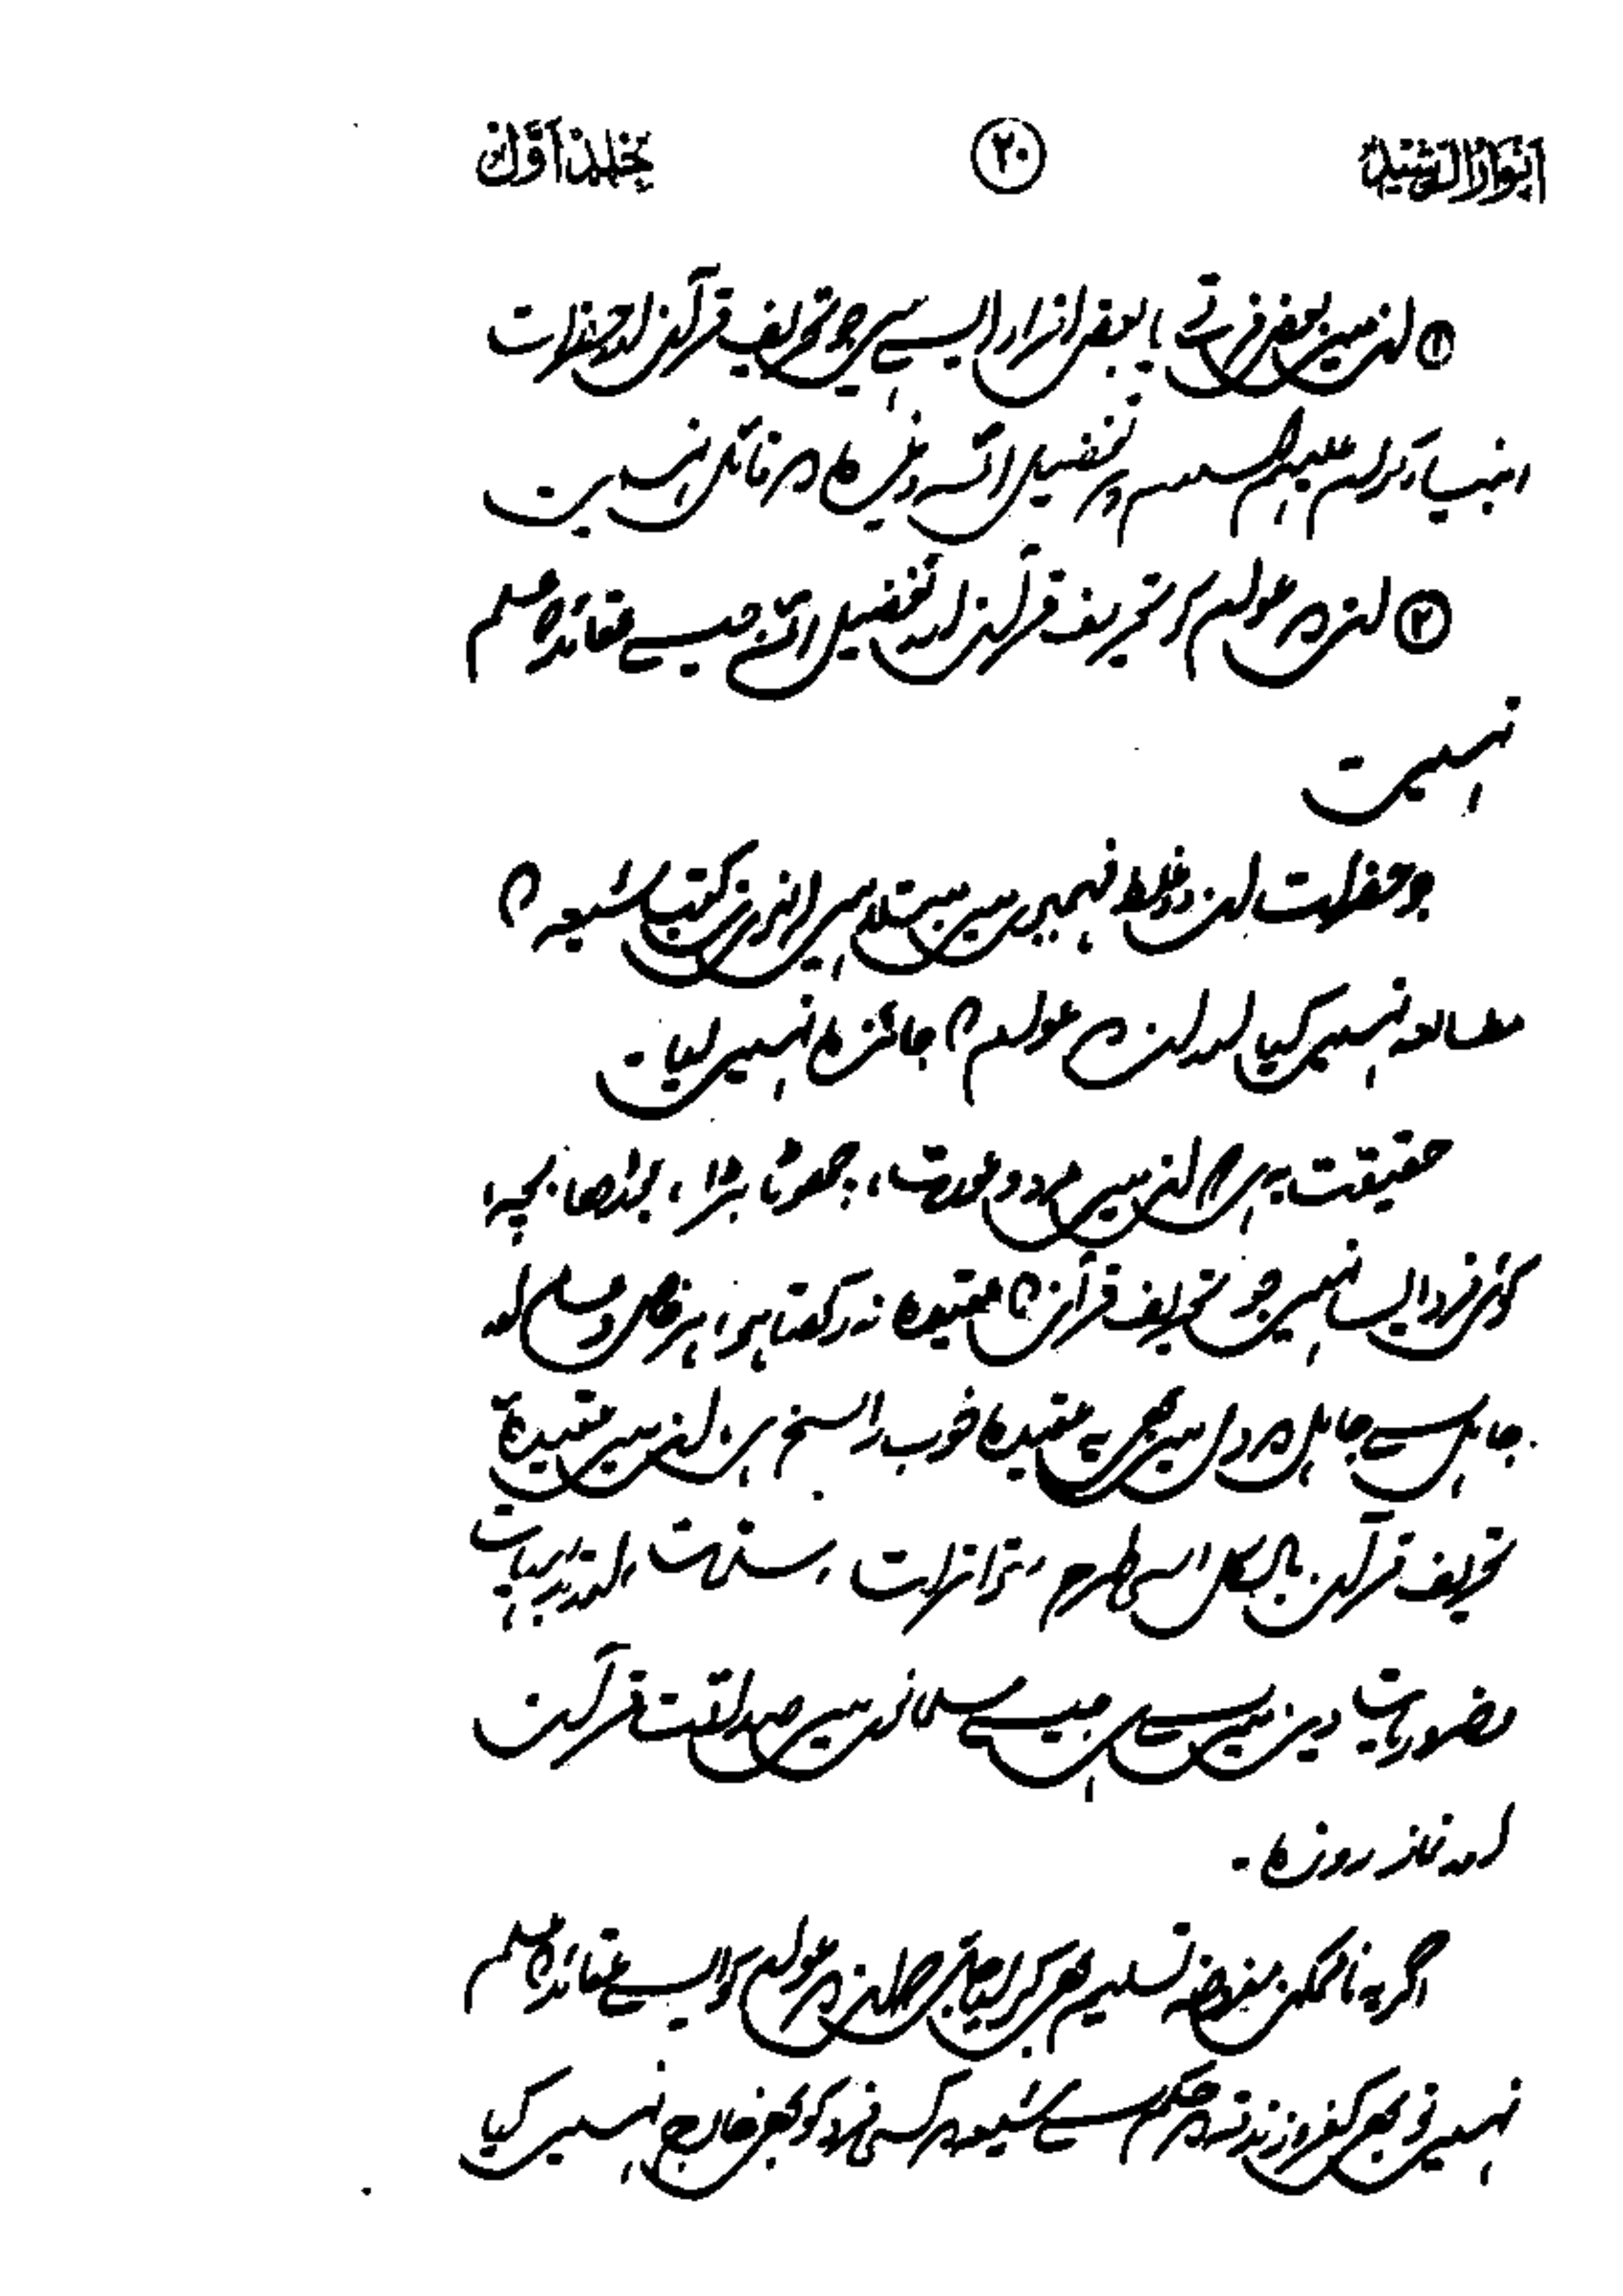 انوار الرشید ۲۰ جلد اول
① ان میں بعض فرقے یا بعض افراد ایسے ہیں جو تحریف قرآن اور حضرات
انبیاء کرام علیہم السلام پر تفضیل ائمہ وغیرہ کے قائل نہیں
② ان کے عوام کو تحریف قرآن اور تفضیل ائمہ جیسے عقائد کا علم
نہیں
جو حضرات ان دو غلط فہمیوں میں مبتلا ہیں انہوں نے کتب شیعہ کا
مطالعہ نہیں کیا اور ان کے عوام کا جائزہ نہیں لیا۔
حقیقت یہ ہے کہ ان میں مرد و عورت، چھوٹا بڑا، بوڑھا بچہ،
کوئی فرد ایسا نہیں جو تحریف قرآن کا عقیدہ نہ رکھتا ہو، ہر خاص و عام اور
جاہل سے جاہل کے دل میں بھی یہ عقیدہ خوب راسخ ہے، ان میں عقیدۂ
تحریف قرآن بالکل اسی طرح متواترات، مسلمات، اور بدیہیات
وضروریات دین میں سے ہے جیسے مسلمانوں میں صداقت قرآن
اور نماز روزہ۔
اگر یہ ناممکن مفروضہ تسلیم بھی کر لیا جائے کہ ان کے عوام کو ایسے عقائد کا علم
نہیں تو بھی کفر و زندقہ کے حکم سے شیعہ کے کسی فرد کو بھی خارج نہیں کیا